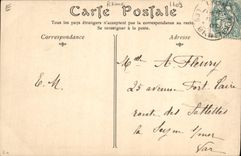 E
Carte Postale
Tous les pays étrangers n'acceptent pas la correspondance au recto.
Se renseigner à la poste.
Correspondance
Adresse
E. M.
A. Fleury
25 avenue Fort Caire
route des Sablettes
la Seyne s/mer
Var